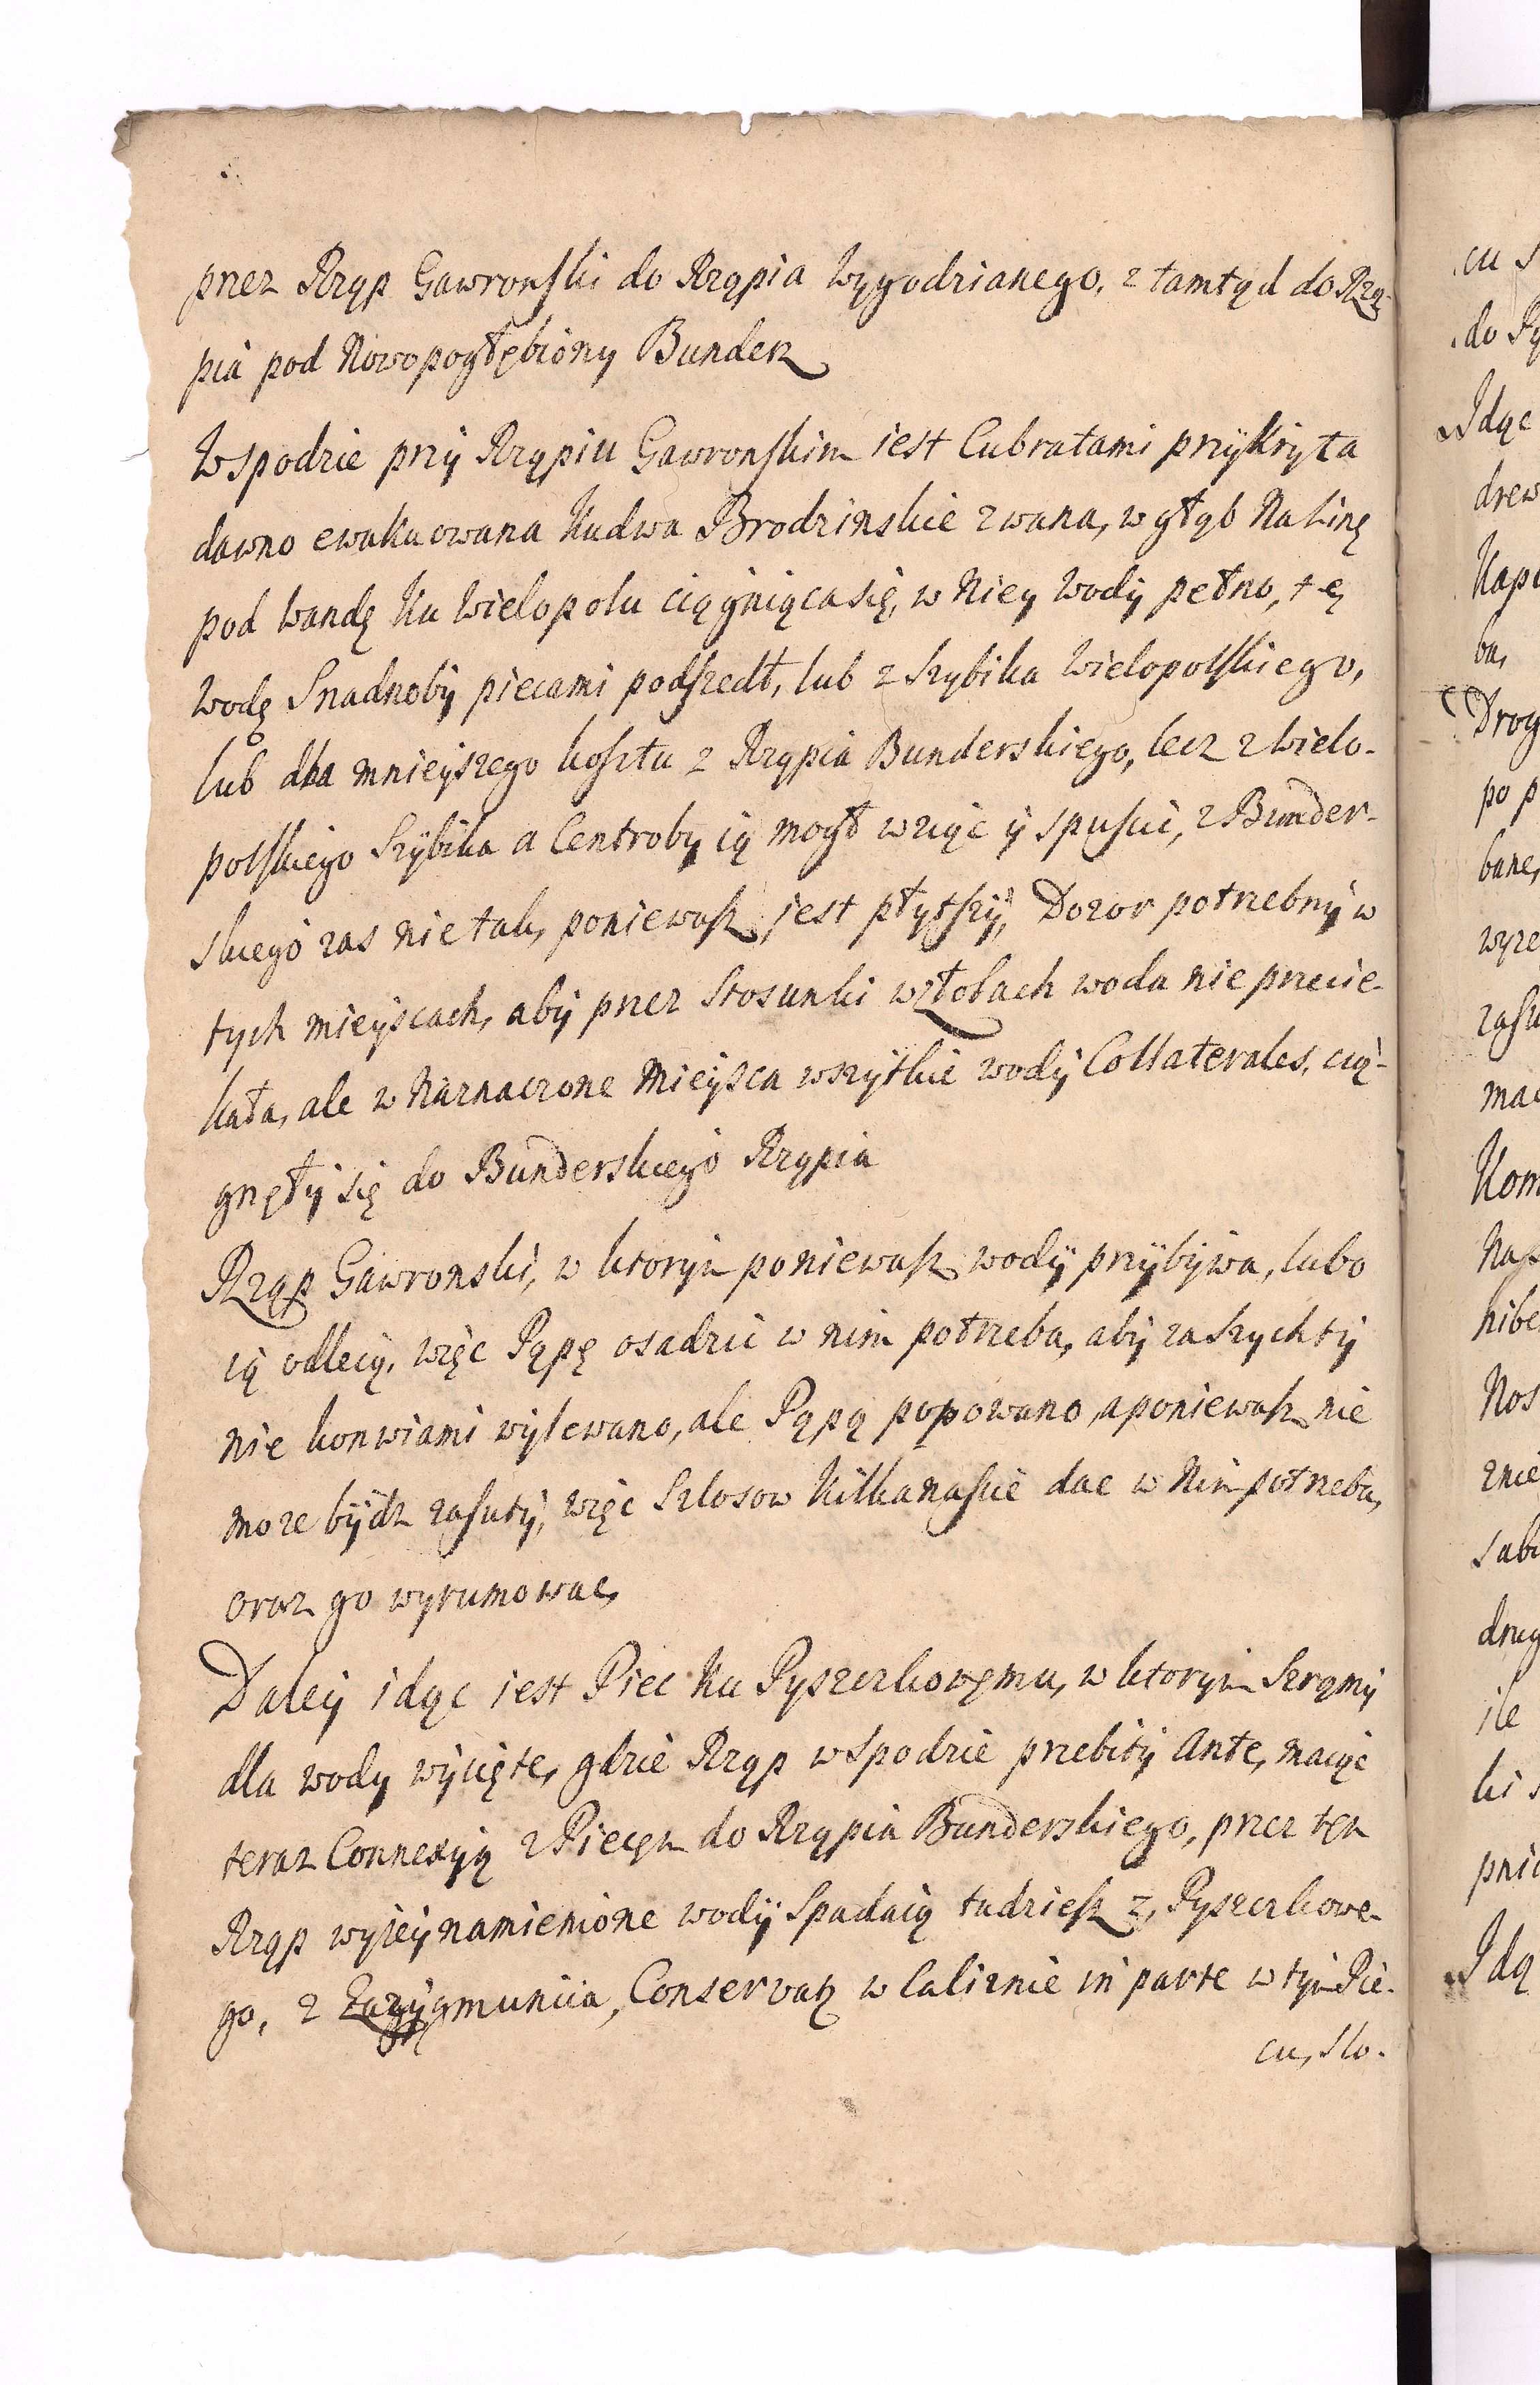 przez Rząp Gawronski do Rząpia Wygodzianego, z tamtąd do Rzą-
pia pod Nowopogłębiony Bunder
W spodzie przy Rząpiu Gawronskim iest Cubratami przykryta
dawno ewakuowana Kudwa Brodzinskie zwana, w głąb Na Linę
pod Wandę ku Wielopolu ciągniąca się, w Niey Wody pełno, tę
Wodę Snadnoby piecami podszedł, lub z Szybika Wielopolskiego,
lub dla mnieyszego kosztu z Rząpia Bunderskiego, lecz z Wielo-
polskiego Szybika a Centroby ią mogł wziąc y spuscic, z Bunder-
skiego zas nie tak, poniewasz jest płytszy, Dozor potrzebny w
tych mieyscach, aby przez Stosunki w złobach woda nie przecie-
kała, ale w Naznaczone Mieysca wszytkie wody Collaterales, cią-
gnęły się do Bunderskiego Rząpia
Rząp Gawronski, w ktorym poniewasz wody przybywa, lubo
ią odlecą, więc Pąpę osadzic w nim potrzeba, aby zaszychty
nie konwiami wylewano, ale Pąpą popowano, a poniewasz nie
moze bydz zasuty, więc Szlosow Kilkanascie dac w Nim potrzeba,
oraz go wyrumowac,
Daley idąc iest Piec ku Pyszczkowemu, w ktorym Szramy
dla wody wycięte, gdzie Rząp w Spodzie przebity Ante, maiąc
teraz Connexyą z Piecem do Rząpia Bunderskiego, przez ten
Rząp wyzey namienione wody Spadaią tudziesz z, Pyszczkowe-
go, z Zazygmuncia, Conservatz w Caliznie in parte w tym Pie-
cu, Slo-
cu
do
Idąc
ba,
po p
bane,
Idą